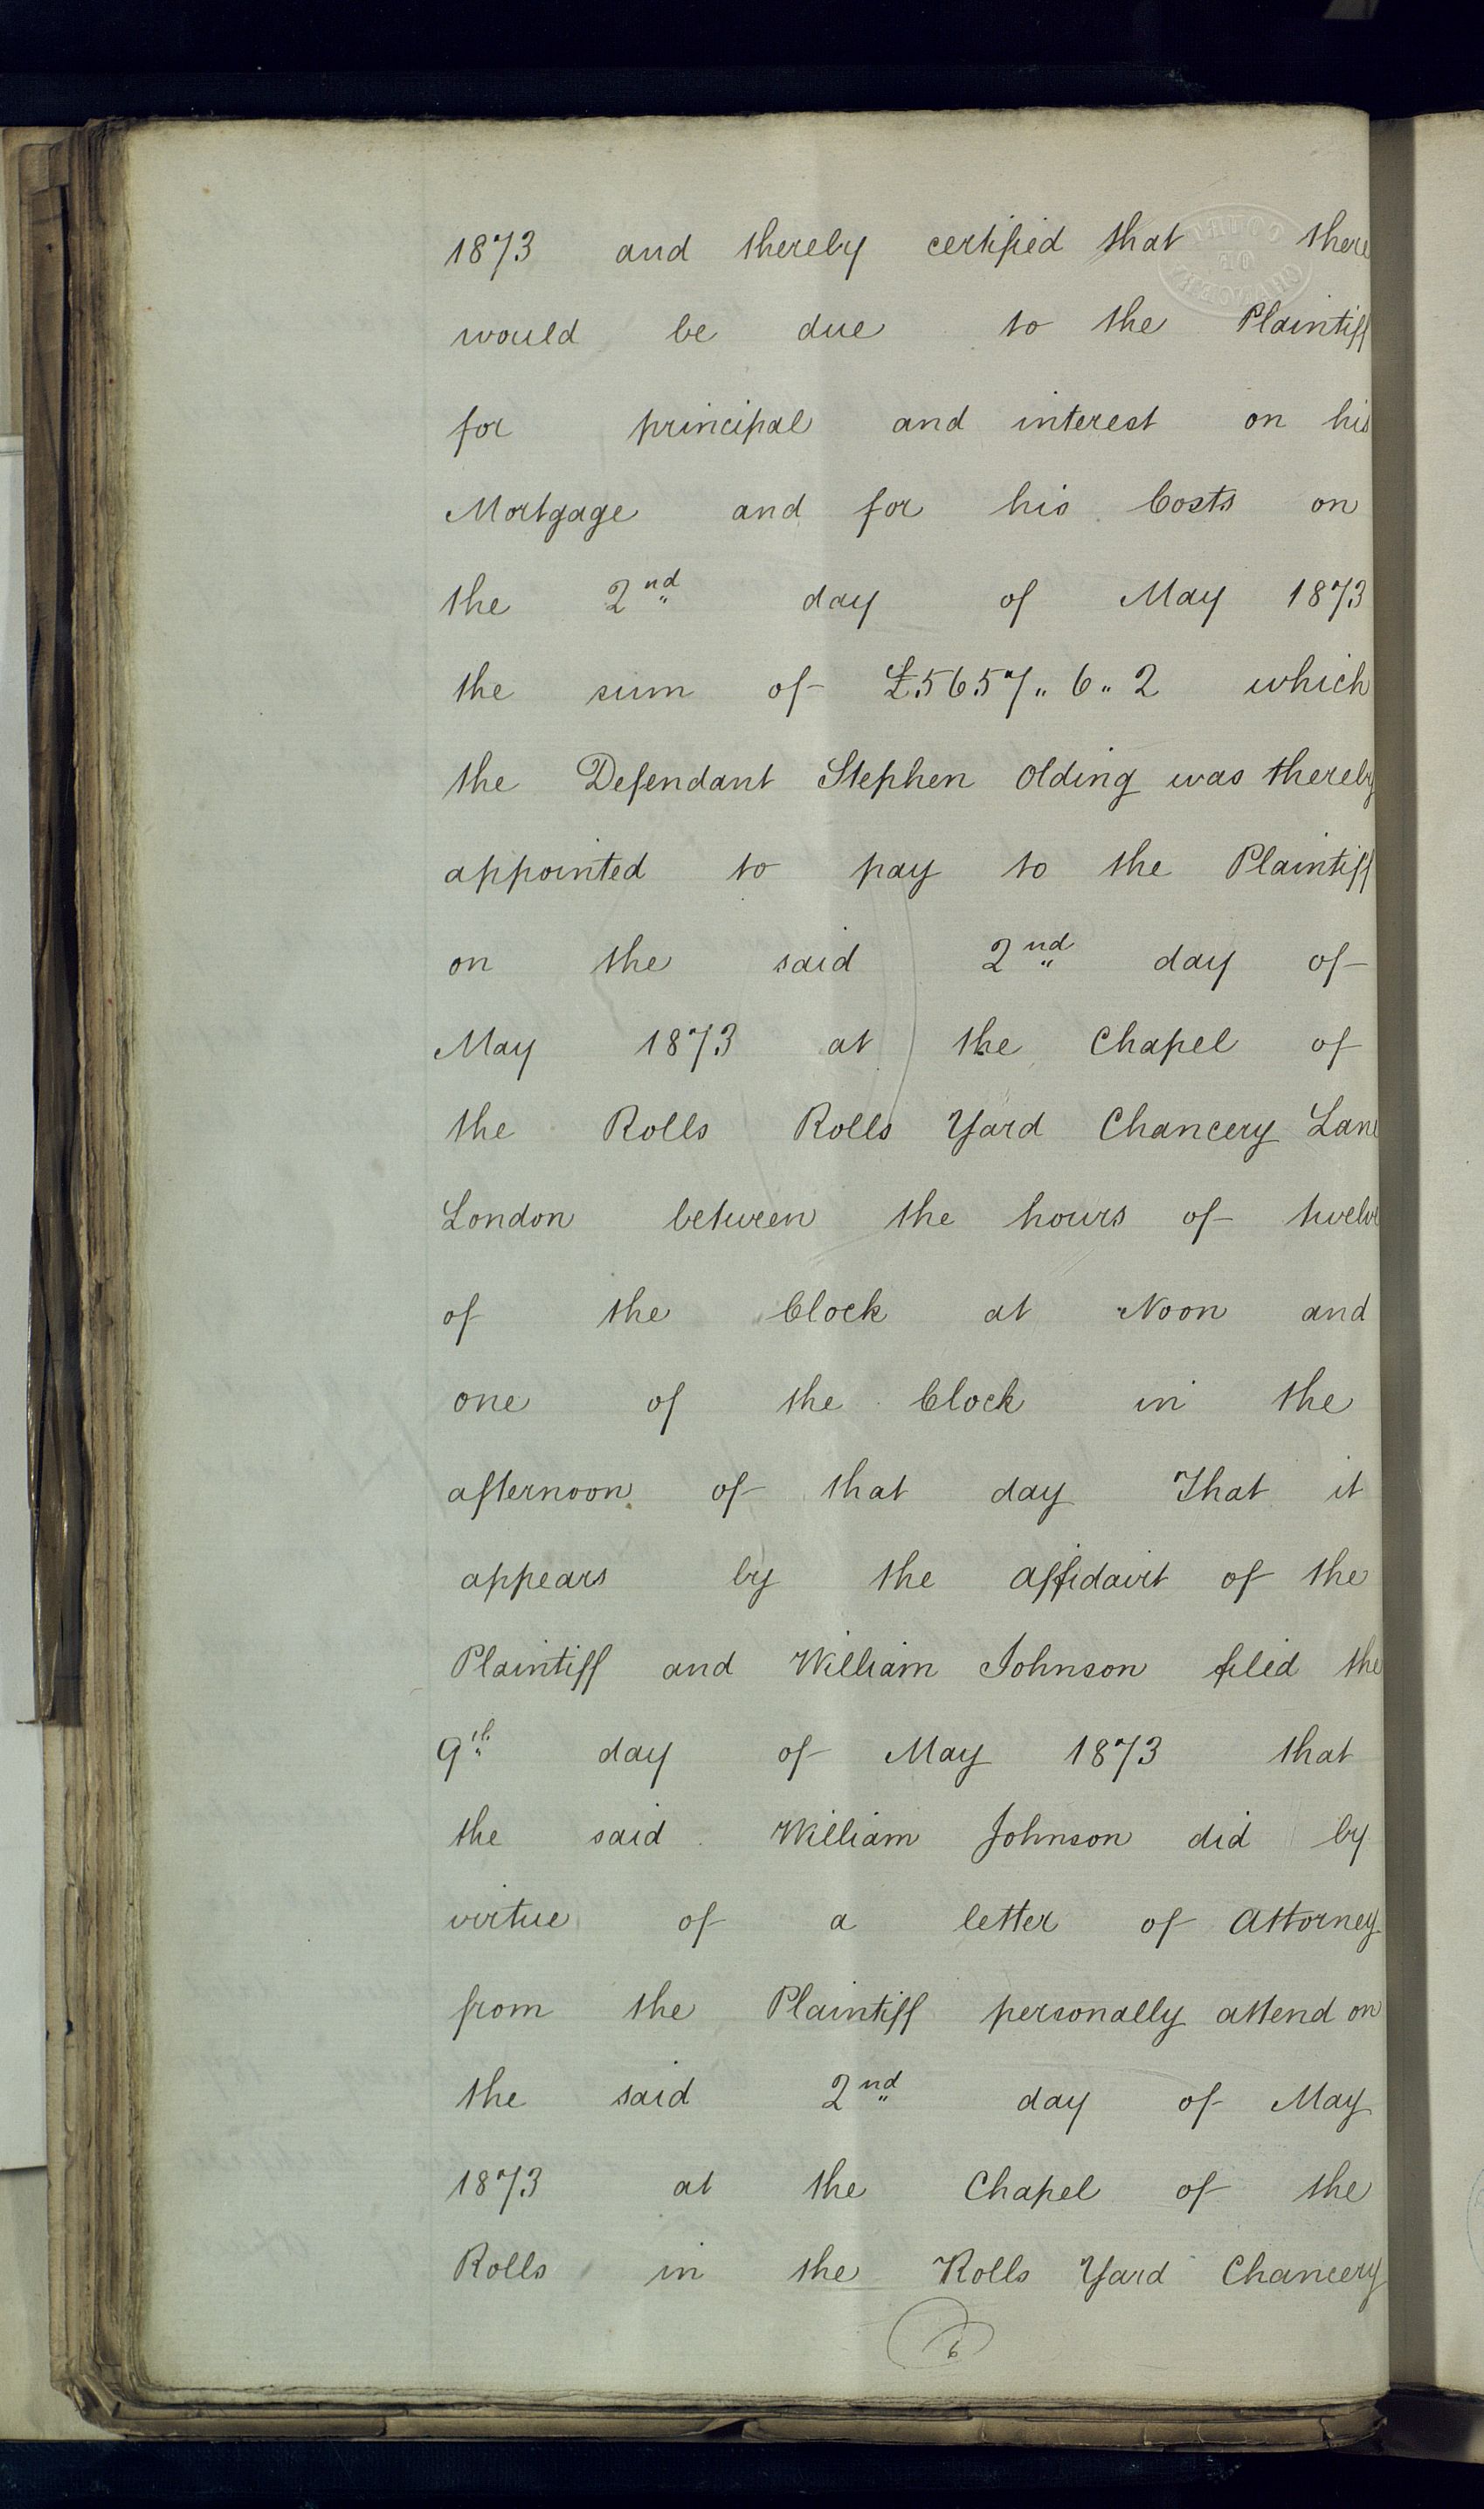 1873 and thereby certified that there
would be due to the Plaintiff
for principal and interest on his
Mortgage and for his Costs on
the 2nd day of May 1873
the sum of £5657.. 6.. 2 which
the Defendant Stephen Olding was thereby
appointed to pay to the Plaintiff
on the said 2nd day of
May 1873 at the Chapel of
the Rolls Rolls Yard Chancery Lane
London between the hours of twelve
of the Clock at Noon and
one of the Clock in the
afternoon of that day That it
appears by the affidavit of the
Plaintiff and William Johnson filed the
9th day of May 1873 that
the said William Johnson did by
virtue of a letter of Attorney
from the Plaintiff personally attend on
the said 2nd day of May
1873 at the Chapel of the
Rolls in the Rolls Yard Chancery
6